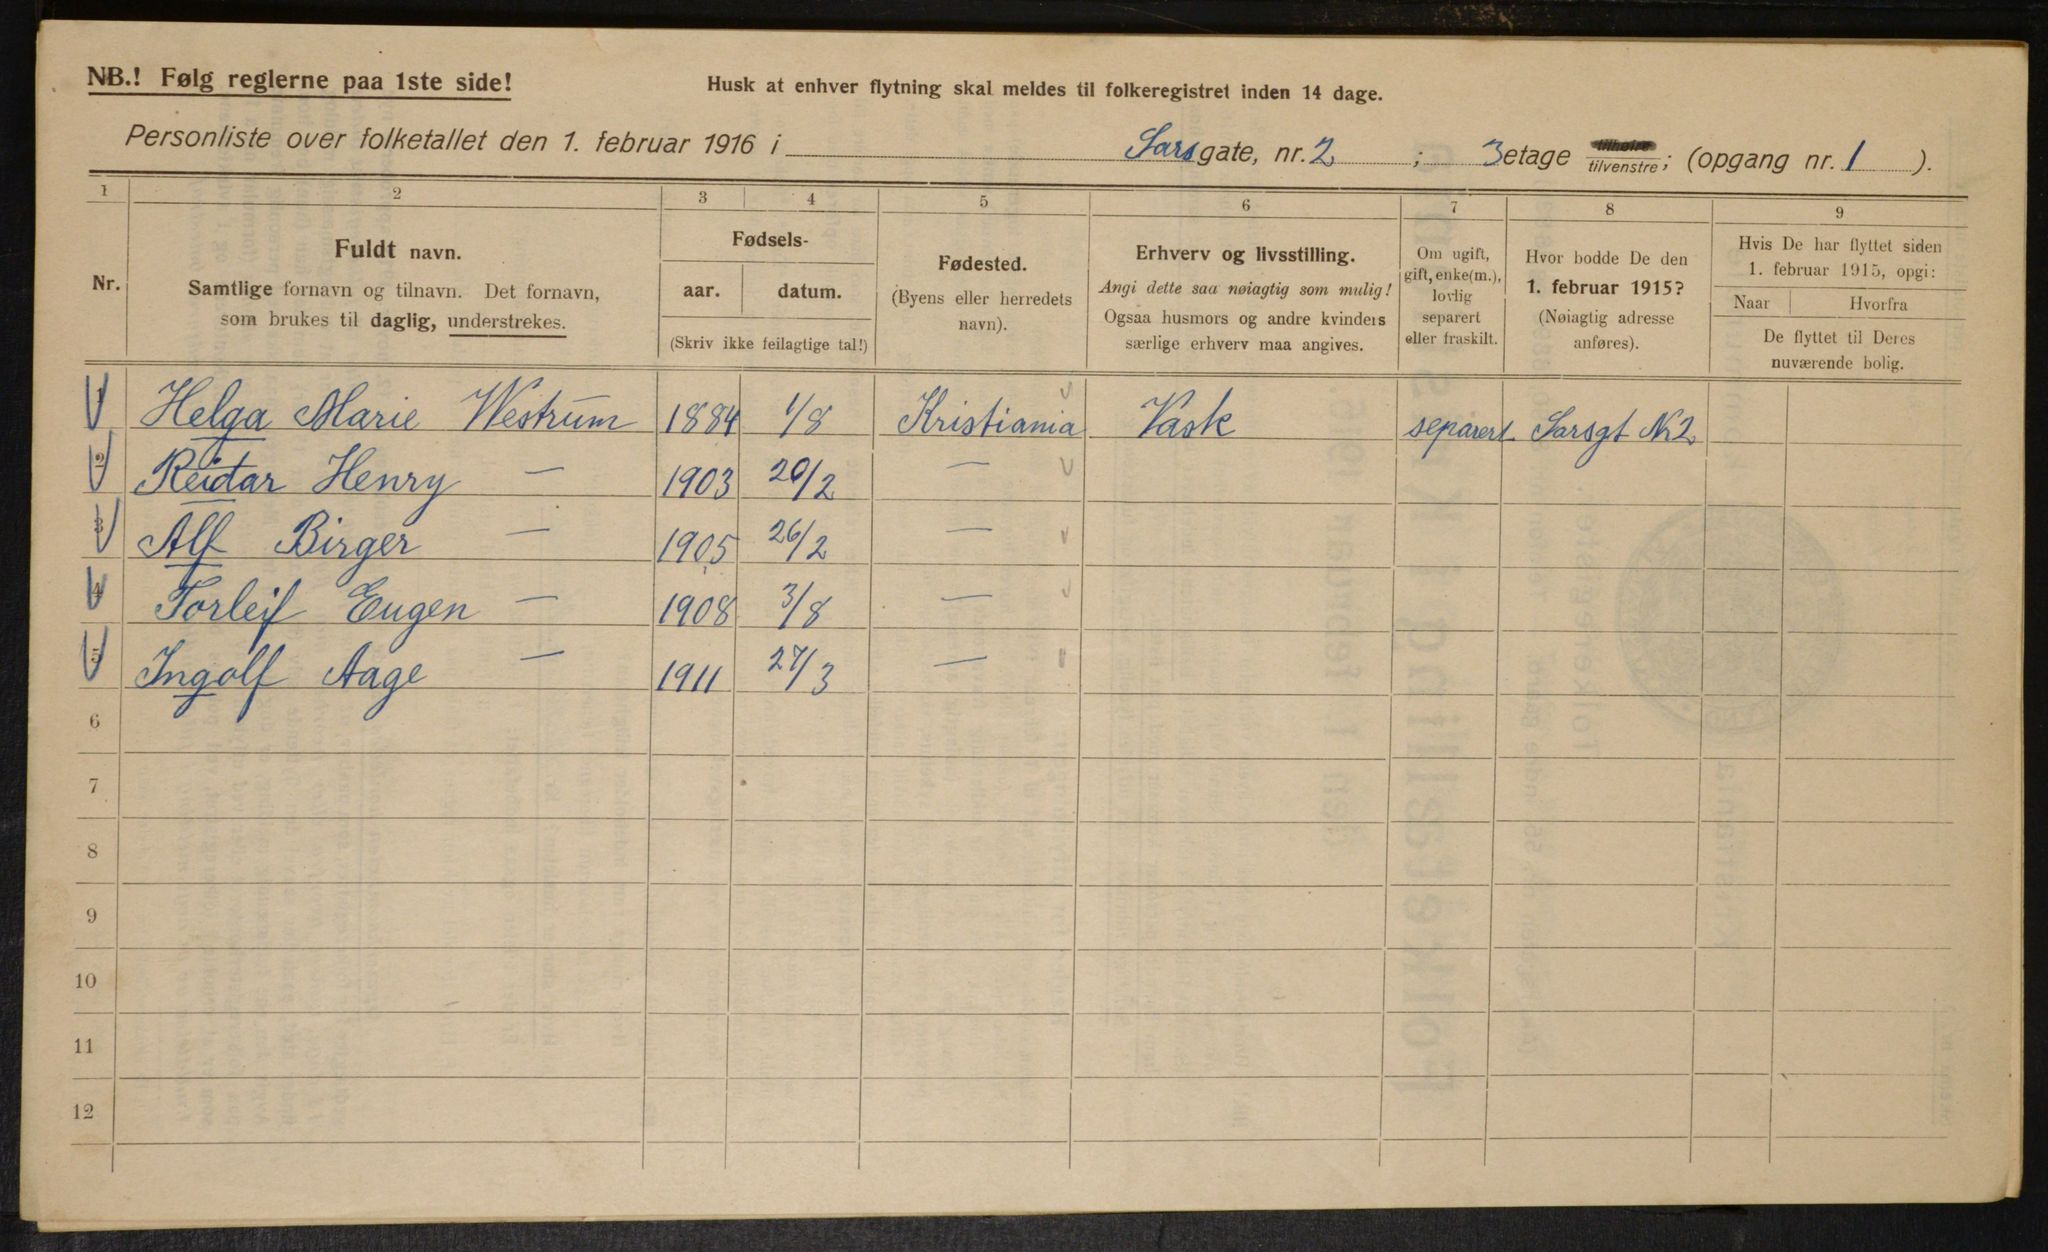 NB.! Følg reglerne paa 1ste side!
Husk at enhver flytning skal meldes til folkeregistret inden 14 dage.
Personliste over folketallet den 1. februar 1916 i Sarsgate, nr. 2 ; 3 etage tilhøire tilvenstre; (opgang nr. 1 ).
1 2 3 4 5 6 7 8 9
Nr.
Fuldt navn.
Samtlige fornavn og tilnavn. Det fornavn,
som brukes til daglig, understrekes.
Fødsels-
aar. datum.
(Skriv ikke feilagtige tal!)
Fødested.
(Byens eller herredets
navn).
Erhverv og livsstilling.
Angi dette saa nøiagtig som mulig!
Ogsaa husmors og andre kvinders
særlige erhverv maa angives.
Om ugift,
gift, enke(m.),
lovlig
separert
eller fraskilt.
Hvor bodde De den
1. februar 1915?
(Nøiagtig adresse
anføres).
Hvis De har flyttet siden
1. februar 1915, opgi:
Naar Hvorfra
De flyttet til Deres
nuværende bolig.
1 Helga Marie Westrum 1884 1/8 Kristiania Vask separert Sarsgt Nr 2
2 Reidar Henry — 1903 20/2 —
3 Alf Birger — 1905 26/2 —
4 Torleif Eugen — 1908 3/8 —
5 Ingolf Aage — 1911 27/3 —
6
7
8
9
10
11
12